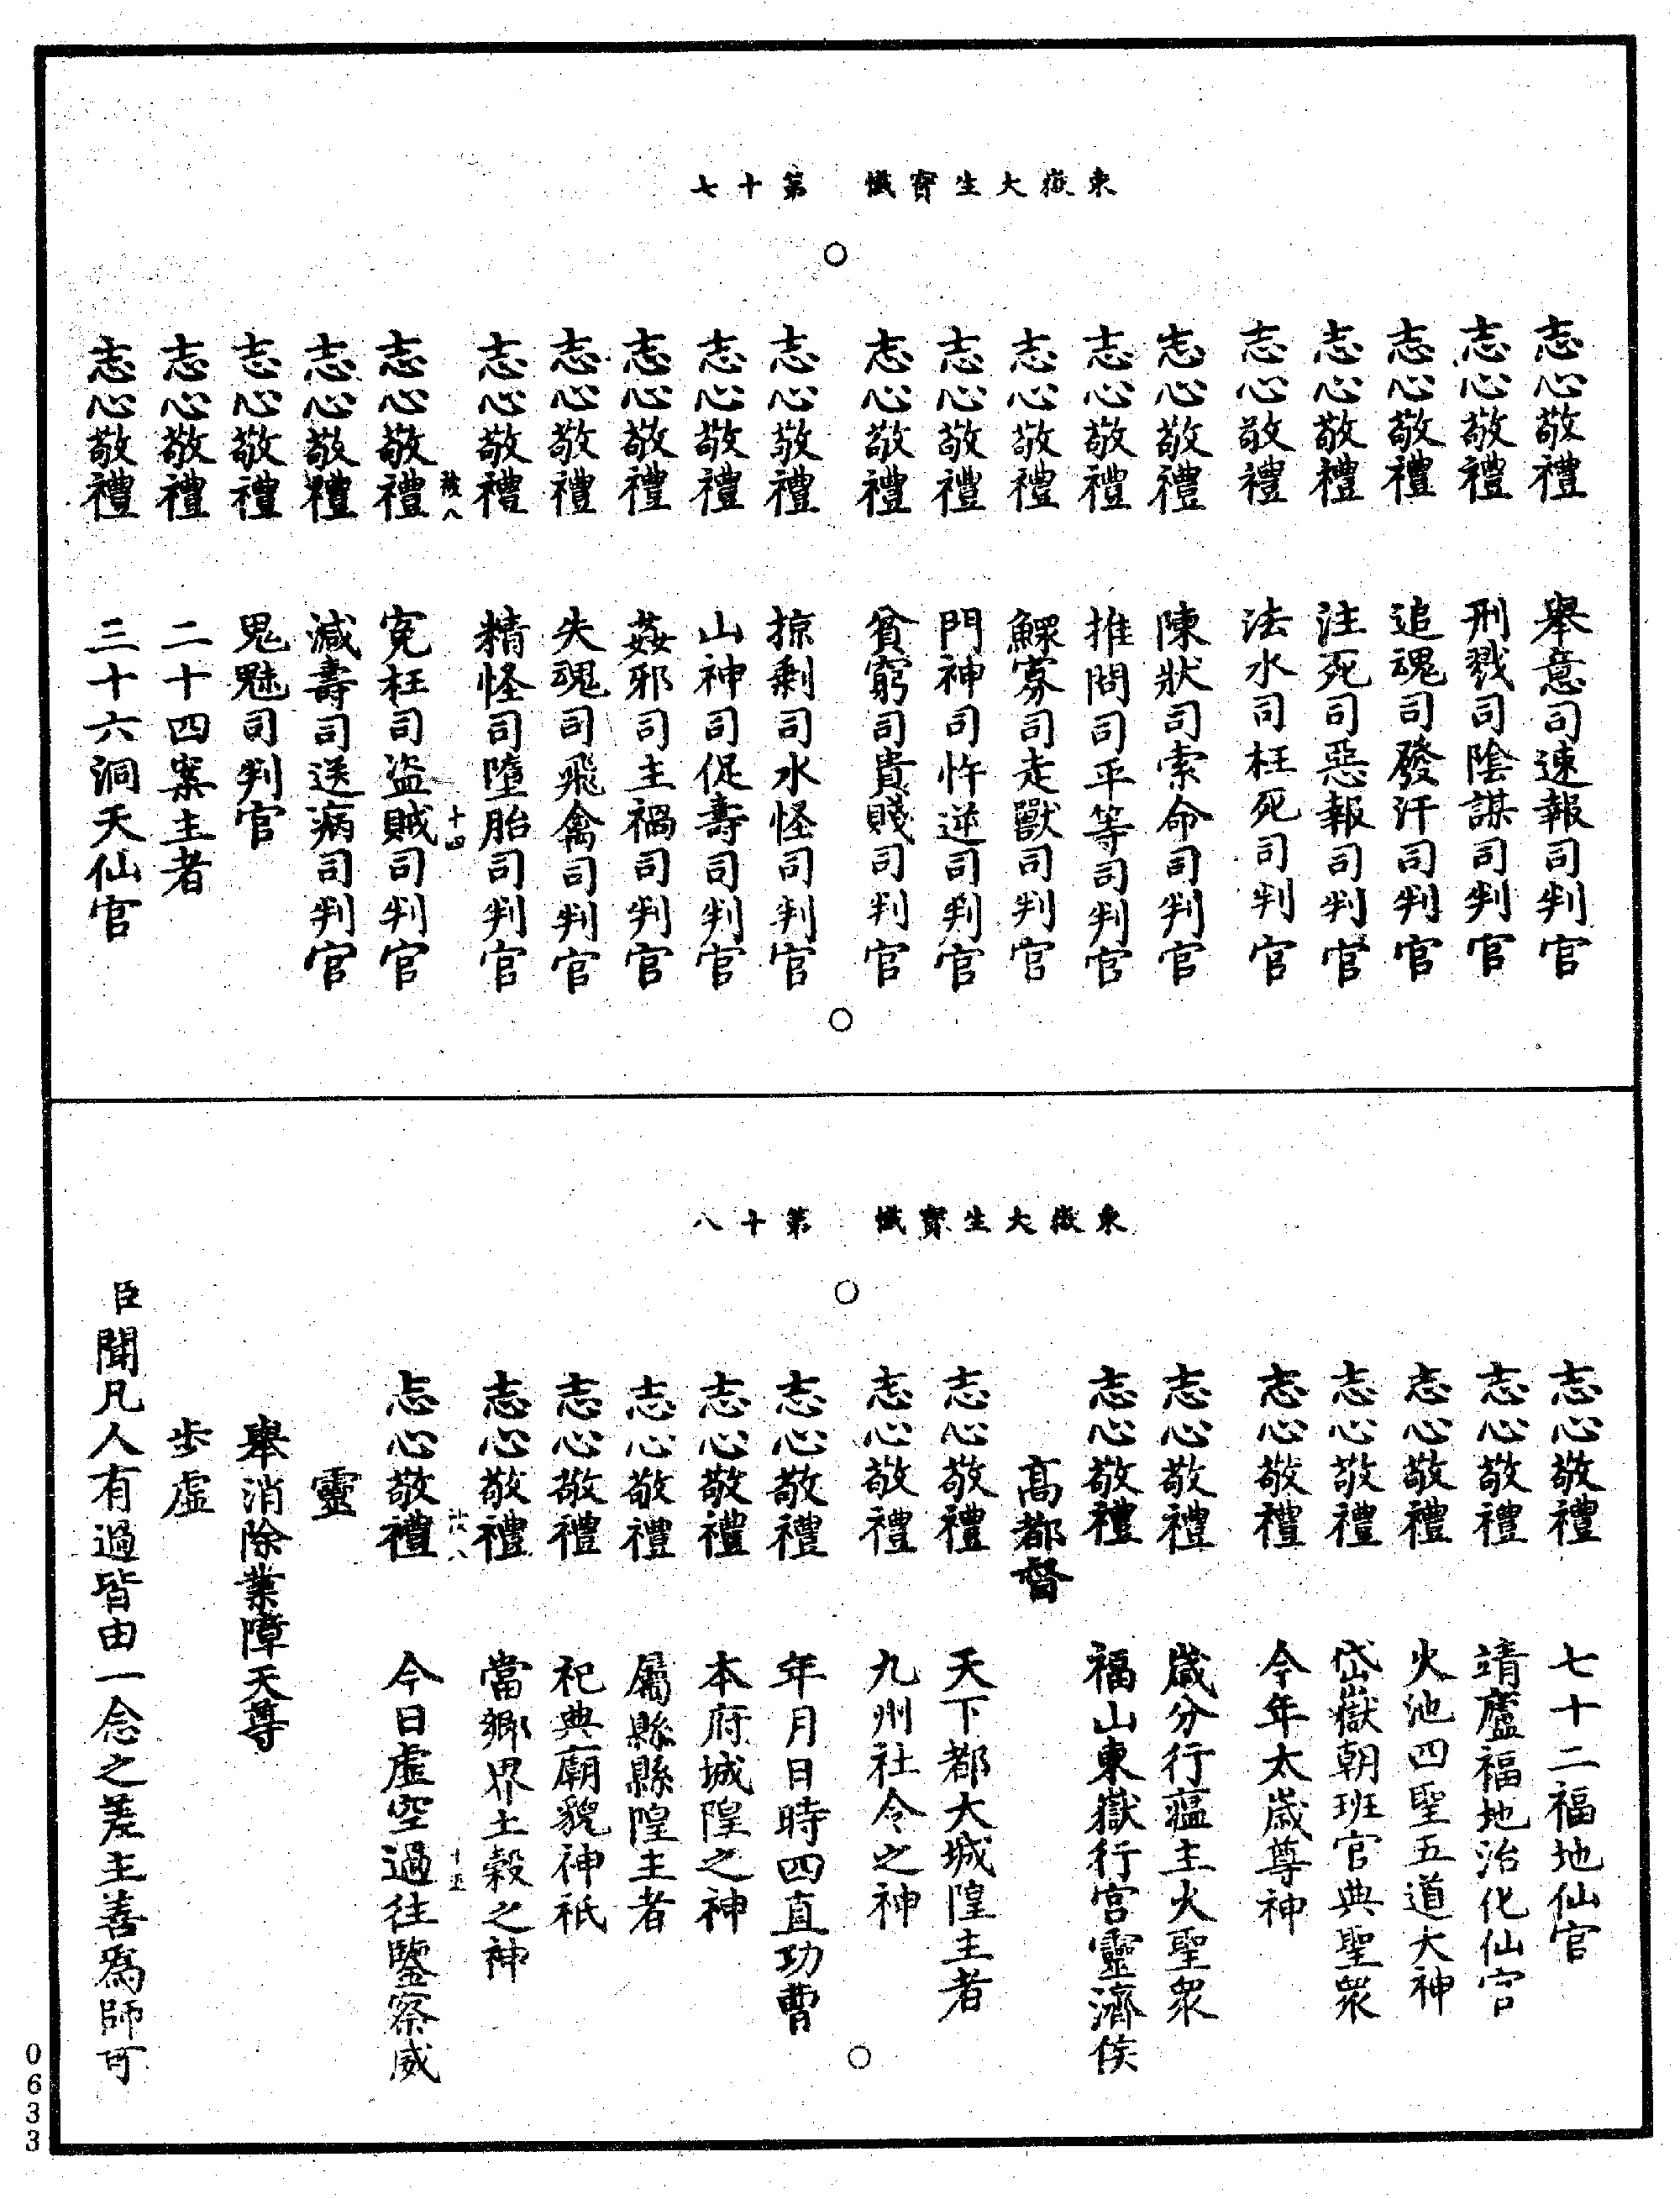 東嶽大生寶懺　第十七
志心敬禮　舉意司速報司判官
志心敬禮　刑戮司陰謀司判官
志心敬禮　追魂司發汗司判官
志心敬禮　注死司惡報司判官
志心敬禮　法水司枉死司判官
志心敬禮　陳狀司索命司判官
志心敬禮　推問司平等司判官
志心敬禮　鰥寡司走獸司判官
志心敬禮　門神司忤逆司判官
志心敬禮　貧窮司貴賤司判官
志心敬禮　掠剩司水怪司判官
志心敬禮　山神司促壽司判官
志心敬禮　姦邪司主禍司判官
志心敬禮　失魂司飛禽司判官
志心敬禮　精怪司墮胎司判官
八　十四
志心敬禮　冤枉司盜賊司判官
志心敬禮　減壽司送病司判官
志心敬禮　鬼魅司判官
志心敬禮　二十四案主者
志心敬禮　三十六洞天仙官
東嶽大生寶懺　第十八
志心敬禮　七十二福地仙官
志心敬禮　靖廬福地治化仙官
志心敬禮　火池四聖五道大神
志心敬禮　岱嶽朝班官典聖衆
志心敬禮　今年太歲尊神
志心敬禮　歲分行瘟主火聖衆
志心敬禮　福山東嶽行宮靈濟侯
高都督
志心敬禮　天下都大城隍主者
志心敬禮　九州社令之神
志心敬禮　年月日時四直功曹
志心敬禮　本府城隍之神
志心敬禮　屬縣縣隍主者
志心敬禮　祀典廟貌神祇
志心敬禮　當鄉界土穀之神
八　十五
志心敬禮　今日虛空過往鑒察威
靈
舉消除業障天尊
步虛
臣聞凡人有過皆由一念之差主善爲師可
0633